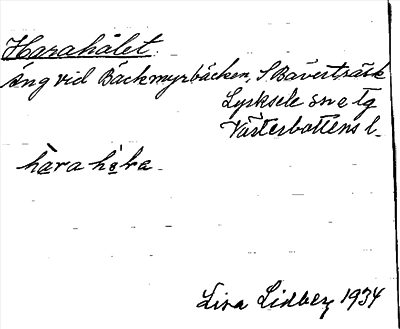 Harahålet.
Äng vid Bäckmyrbäcken, S Bäverträsk
Lycksele sn o tg
Västerbottens l.
hara hå̀la.
Lisa Lidberg 1934